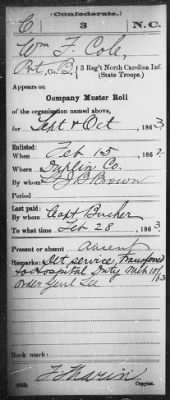 (Confederate.)
C 3 N.C.
Wm F. Cole
Pvt, Co. B, 3 Reg't North Carolina Inf.
(State Troops.)
Appears on
Company Muster Roll
of the organization named above,
for Sept & Oct, 1863.
Enlisted:
When Feb 15, 186
Where Duplin Co.
By whom Brown
Period
Last paid:
By whom Capt
To what time Feb 28, 1863.
Present or absent Absent
Remarks: Det. service, Transferred
to Hospital Duty Mch 10/63
Order Genl Lee
Book mark:
(642) Copyist.